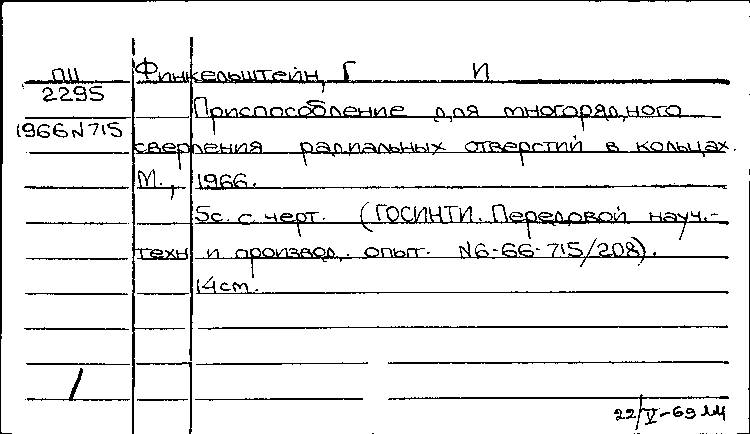 ПШ Финкельштейн, Г И
2295
Приспособление для многорядного
1966 N 715
сверления радиальных отверстий в кольцах.
М., 1966.
5с. с черт. (ГОСИНТИ. Передовой науч.-
техн и производ. опыт. N6-66-715/208).
14см.
22/V-69